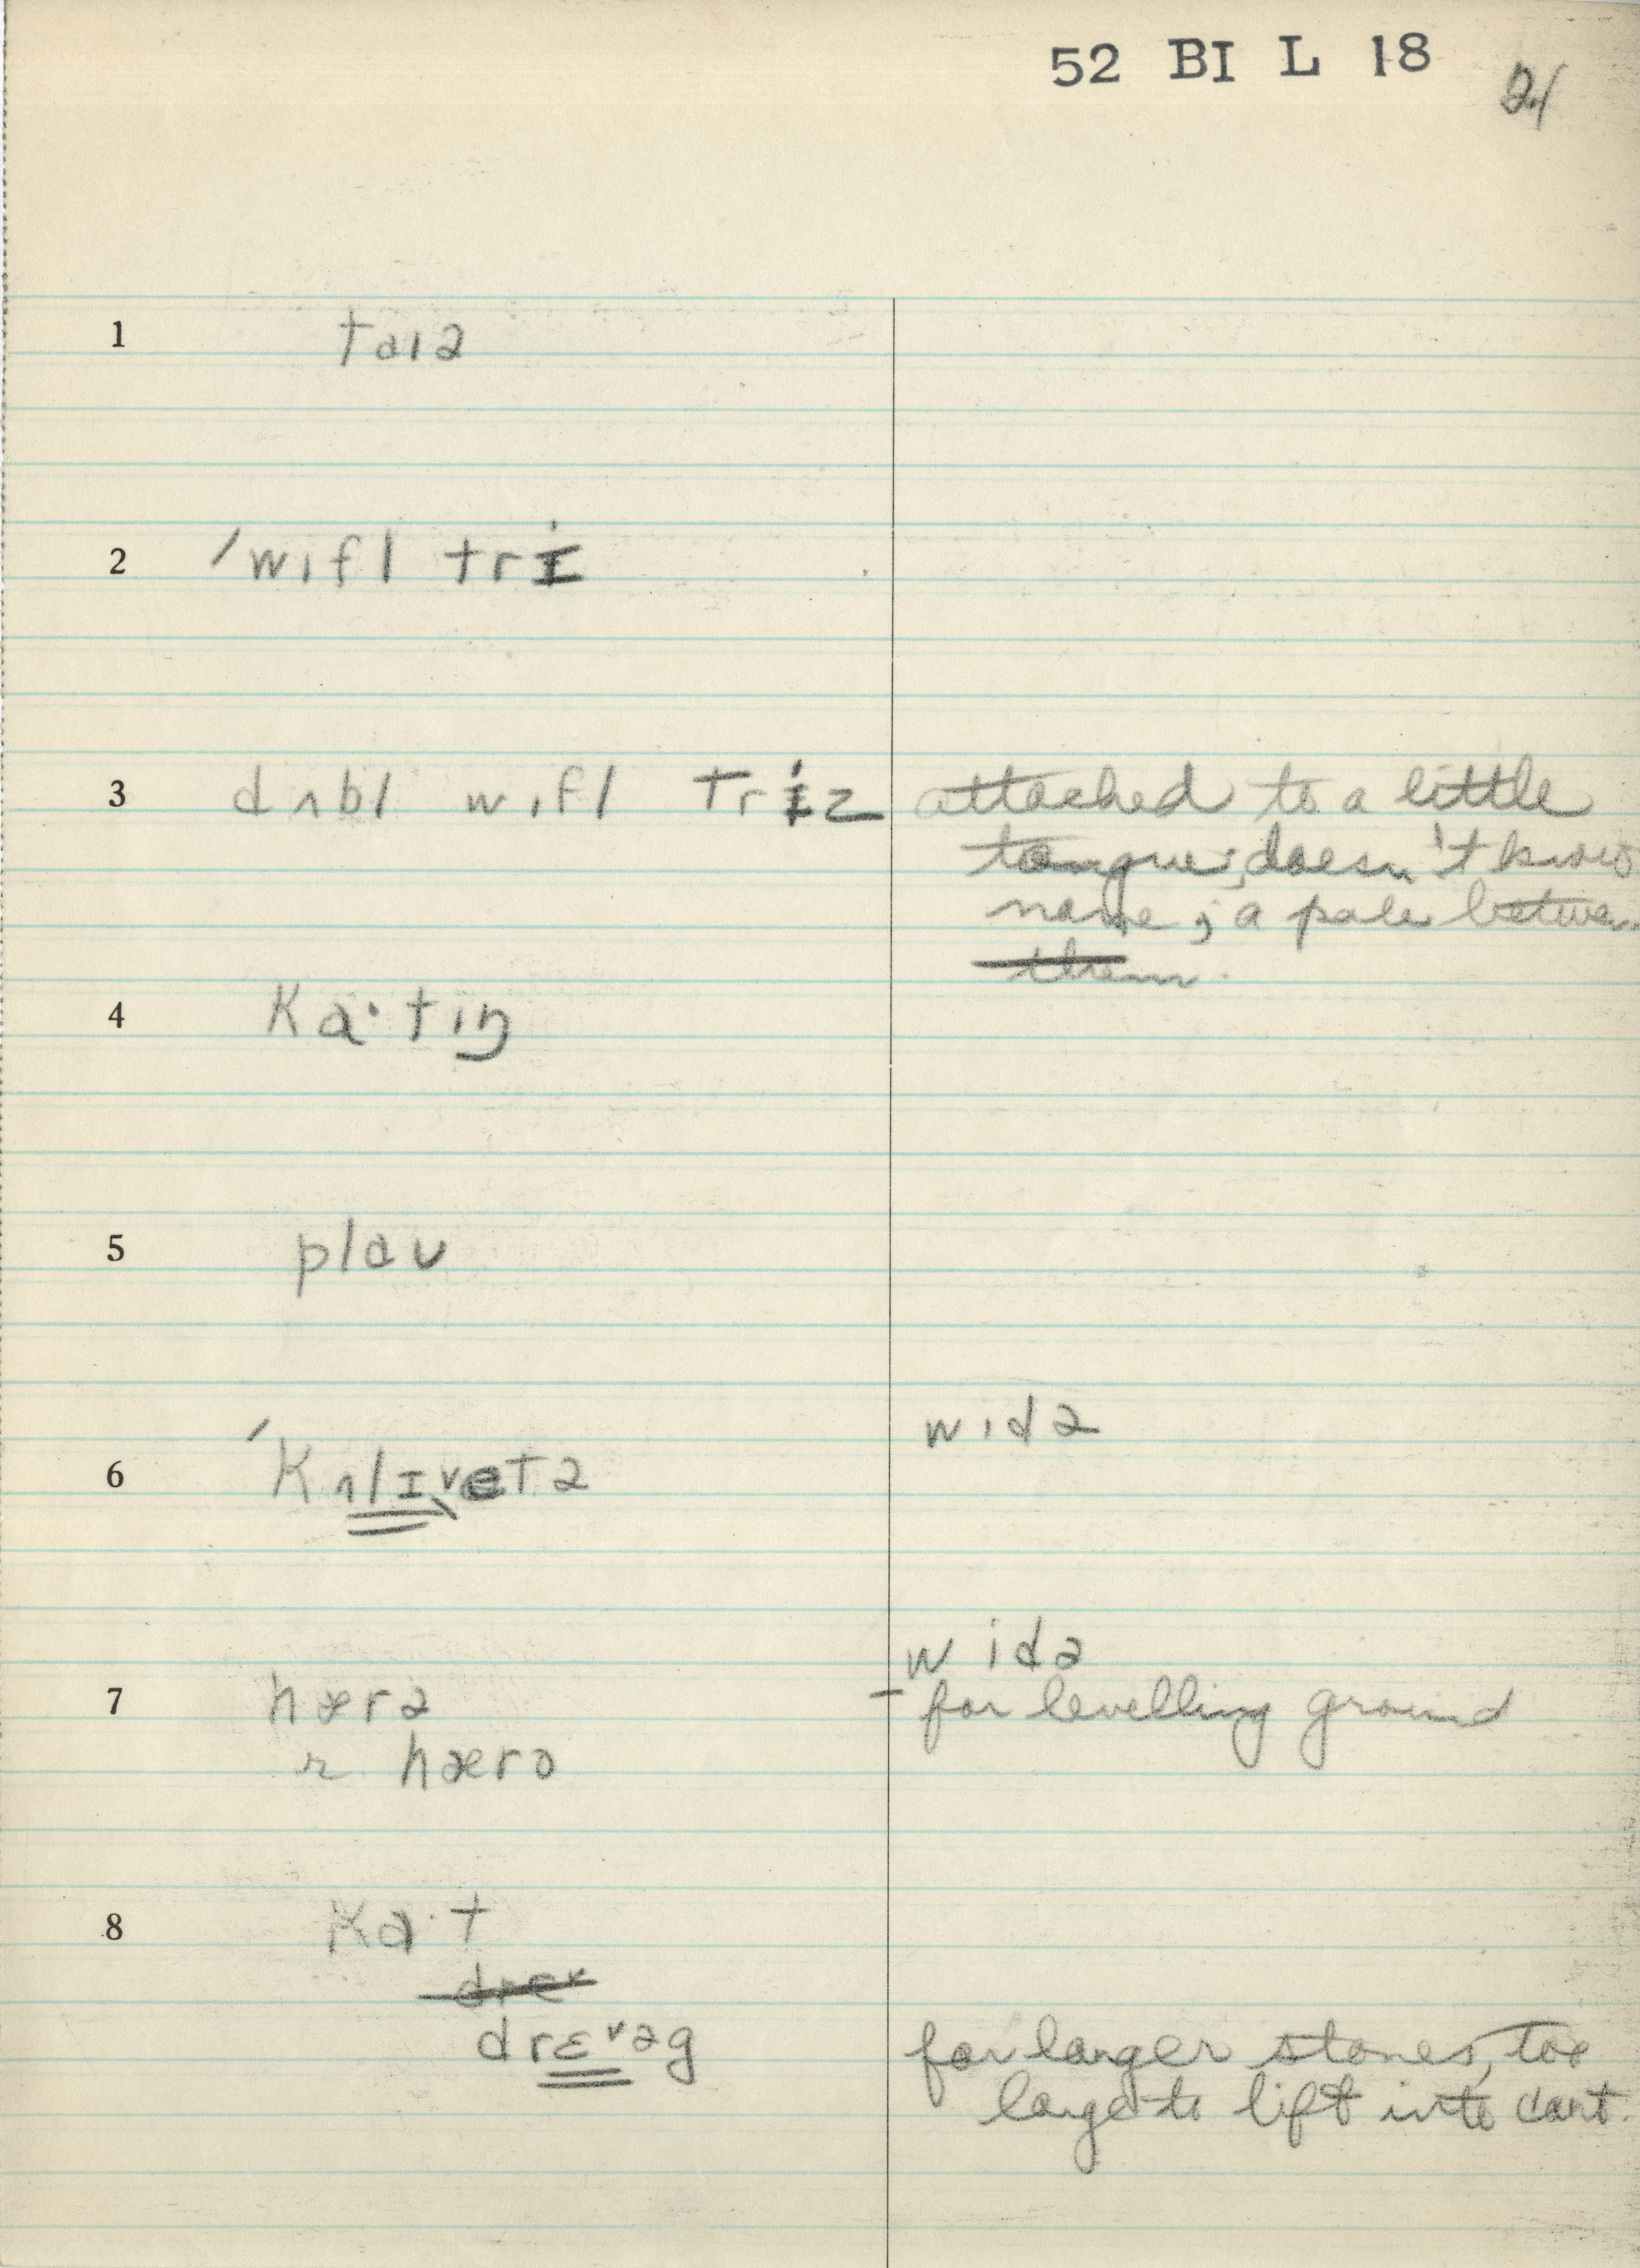 52 BI L 18
21
1 taɪə
2 ˈwɪfl trɪ
3 dʌbl wɪfl triz attached to a little
tongue; doesn't know
name; a pole between
them.
4 ka·tɪŋ
5 plaʊ
6 ˈkʌlɪvetə widə
7 hærə widə
– for levelling ground
r hæro
8 ka·t
drev
drɛvəg for larger stones, too
large to lift into cart.